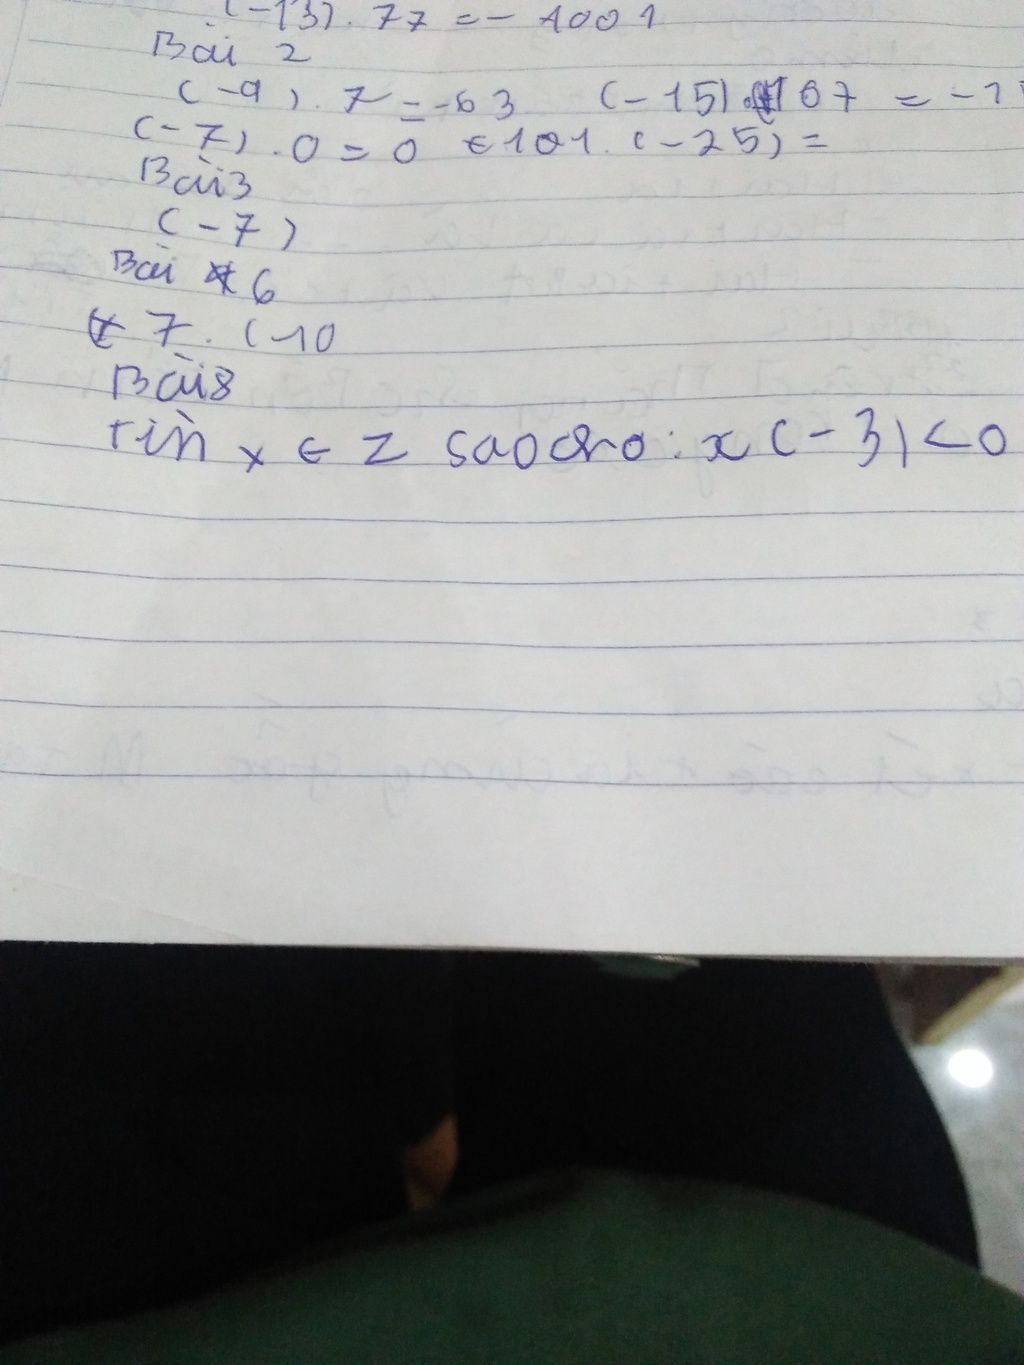 (-13). 77 = - 1001
Bài 2
(-9). 7 = -63 (-15). 107 = -1
(-7). 0 = 0 101. (-25) =
Bài 3
(-7)
Bài 6
7. (-10
Bài 8
x ∈ Z sao cho: x (-3) < 0